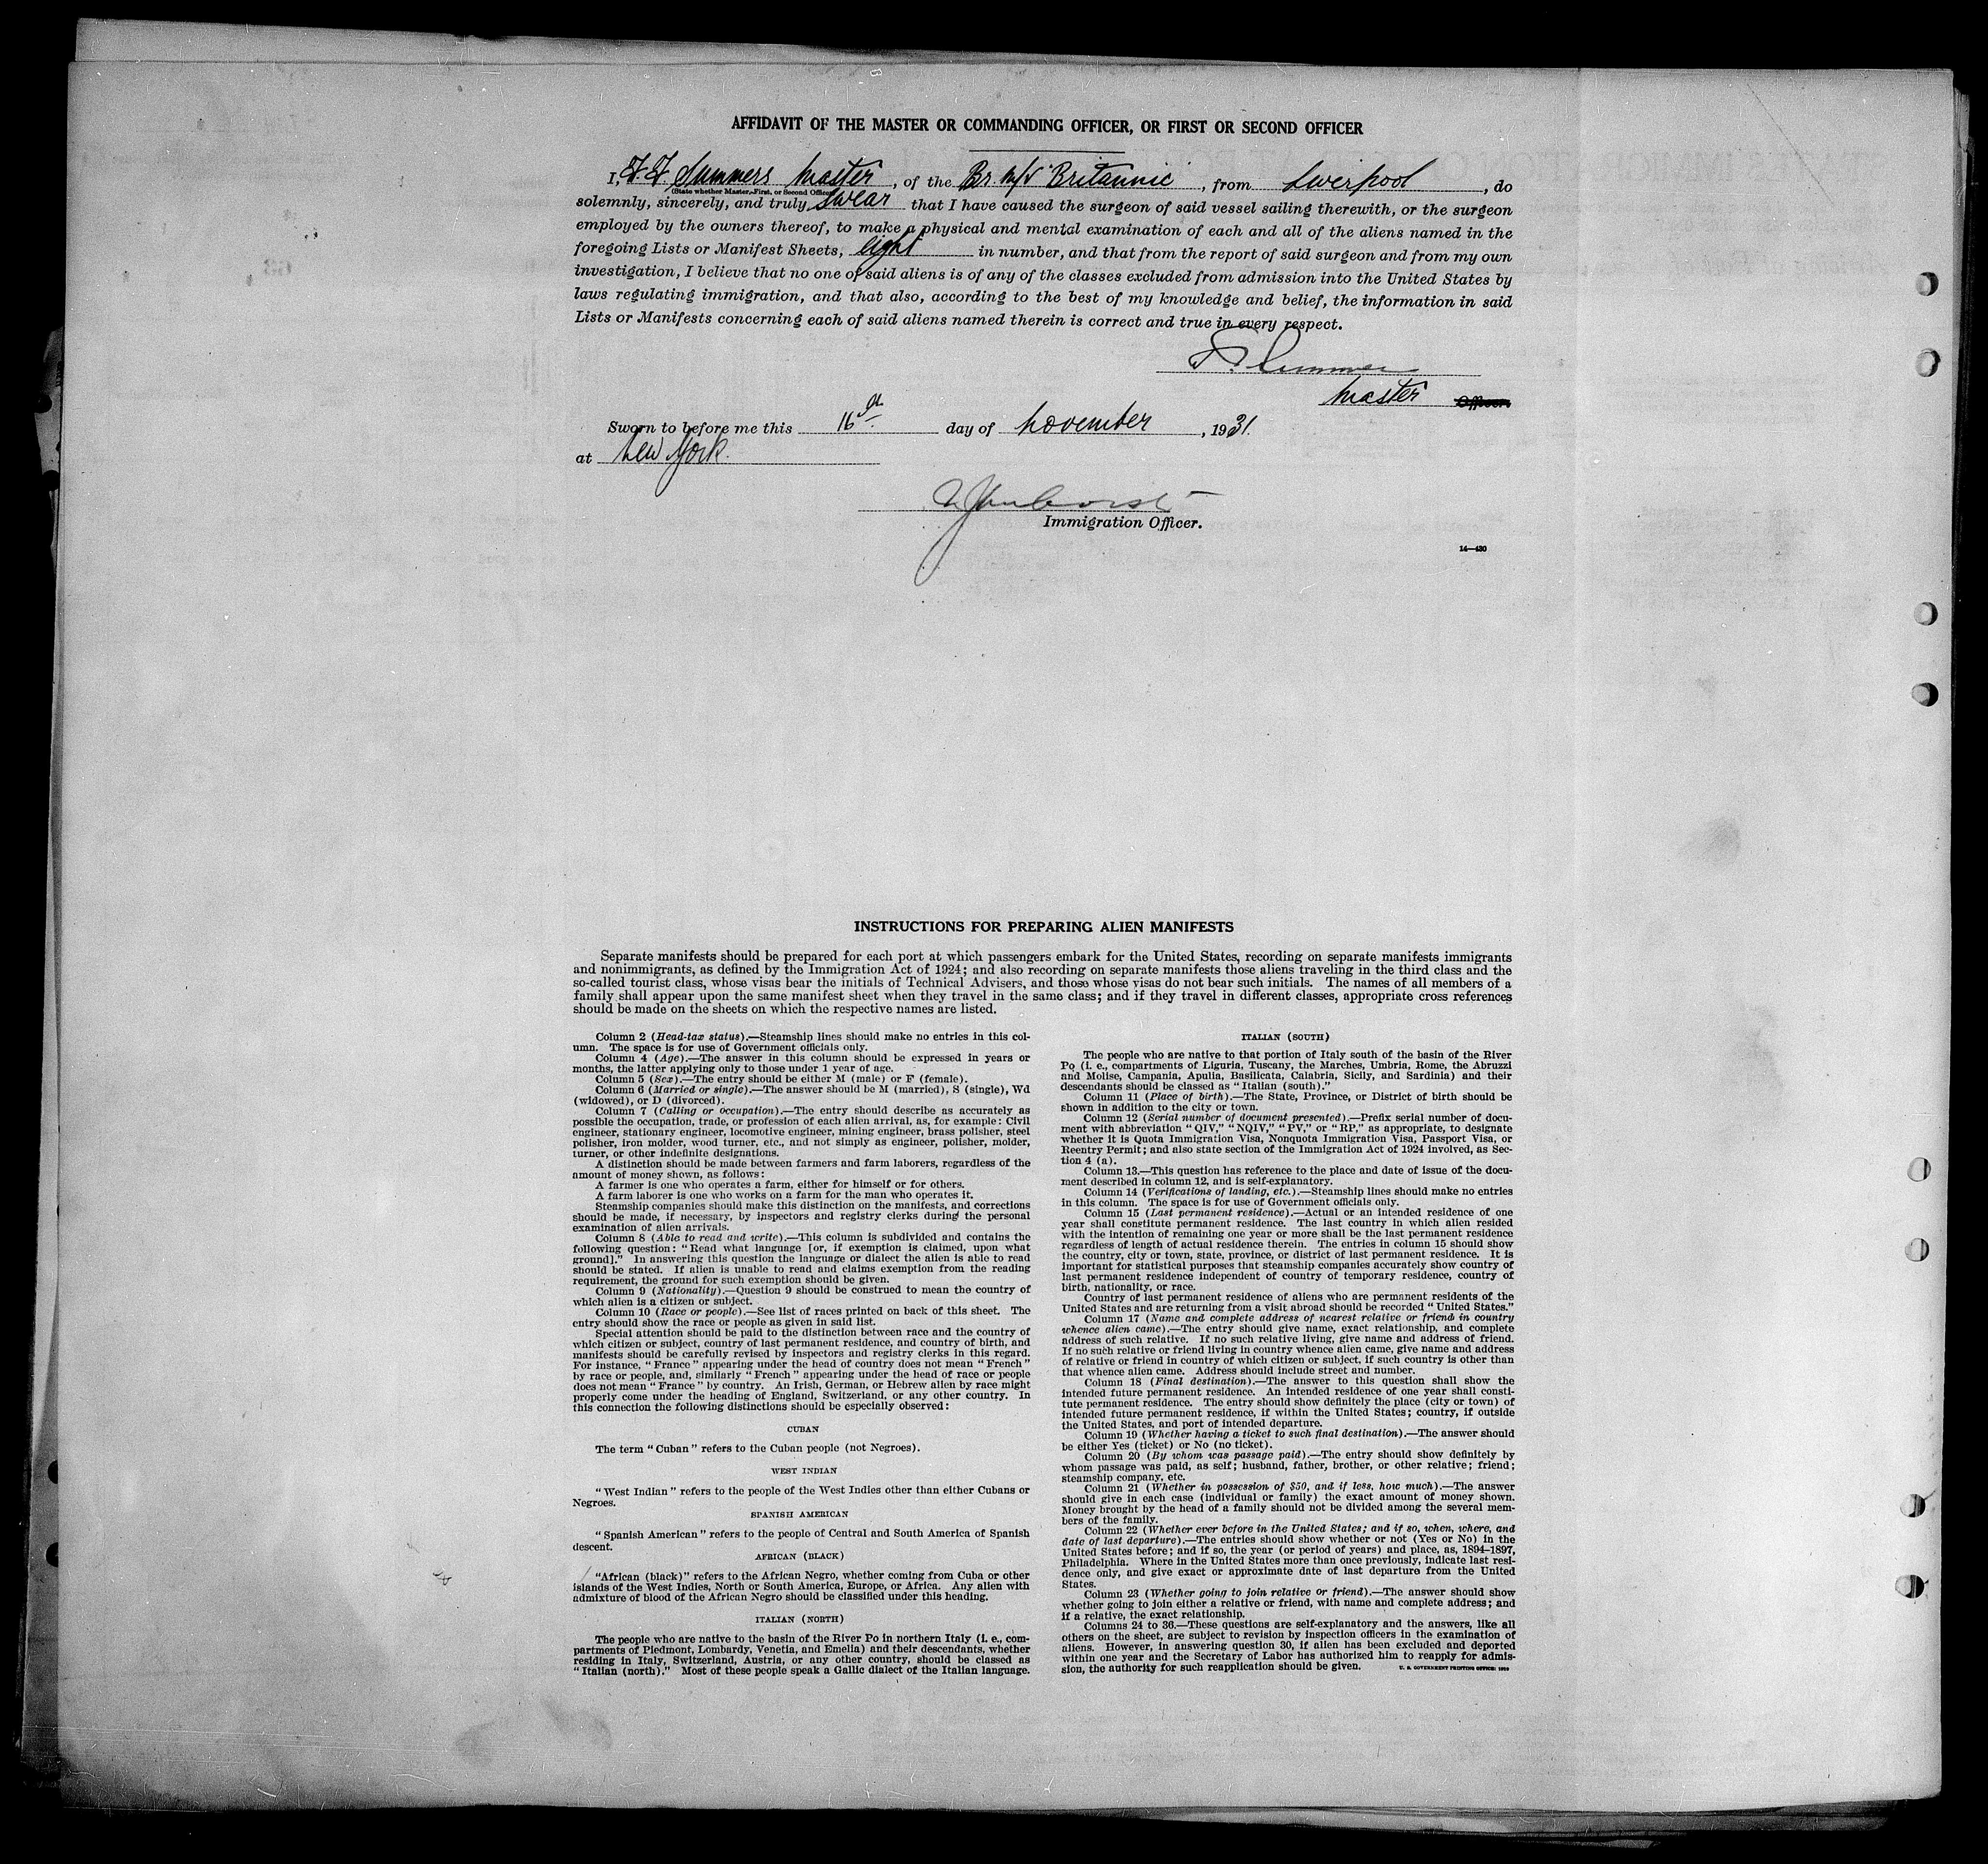 AFFIDAVIT OF THE MASTER OR COMMANDING OFFICER, OR FIRST OR SECOND OFFICER
I, F. F. Summers Master, of the Br M/V Britannic, from Liverpool, do
(State whether Master, First, or Second Officer)
solemnly, sincerely, and truly swear that I have caused the surgeon of said vessel sailing therewith, or the surgeon
employed by the owners thereof, to make a physical and mental examination of each and all of the aliens named in the
foregoing Lists or Manifest Sheets, eight in number, and that from the report of said surgeon and from my own
investigation, I believe that no one of said aliens is of any of the classes excluded from admission into the United States by
laws regulating immigration, and that also, according to the best of my knowledge and belief, the information in said
Lists or Manifests concerning each of said aliens named therein is correct and true in every respect.
Master Officer.
Sworn to before me this 16th day of November, 1931.
at New York.
Immigration Officer.
14—430
INSTRUCTIONS FOR PREPARING ALIEN MANIFESTS
Separate manifests should be prepared for each port at which passengers embark for the United States, recording on separate manifests immigrants
and nonimmigrants, as defined by the Immigration Act of 1924; and also recording on separate manifests those aliens traveling in the third class and the
so-called tourist class, whose visas bear the initials of Technical Advisers, and those whose visas do not bear such initials. The names of all members of a
family shall appear upon the same manifest sheet when they travel in the same class; and if they travel in different classes, appropriate cross references
should be made on the sheets on which the respective names are listed.
Column 2 (Head-tax status).—Steamship lines should make no entries in this col-
umn. The space is for use of Government officials only.
Column 4 (Age).—The answer in this column should be expressed in years or
months, the latter applying only to those under 1 year of age.
Column 5 (Sex).—The entry should be either M (male) or F (female).
Column 6 (Married or single).—The answer should be M (married), S (single), Wd
(widowed), or D (divorced).
Column 7 (Calling or occupation).—The entry should describe as accurately as
possible the occupation, trade, or profession of each alien arrival, as, for example: Civil
engineer, stationary engineer, locomotive engineer, mining engineer, brass polisher, steel
polisher, iron molder, wood turner, etc., and not simply as engineer, polisher, molder,
turner, or other indefinite designations.
A distinction should be made between farmers and farm laborers, regardless of the
amount of money shown, as follows:
A farmer is one who operates a farm, either for himself or for others.
A farm laborer is one who works on a farm for the man who operates it.
Steamship companies should make this distinction on the manifests, and corrections
should be made, if necessary, by inspectors and registry clerks during the personal
examination of alien arrivals.
Column 8 (Able to read and write).—This column is subdivided and contains the
following question: "Read what language [or, if exemption is claimed, upon what
ground]." In answering this question the language or dialect the alien is able to read
should be stated. If alien is unable to read and claims exemption from the reading
requirement, the ground for such exemption should be given.
Column 9 (Nationality).—Question 9 should be construed to mean the country of
which alien is a citizen or subject.
Column 10 (Race or people).—See list of races printed on back of this sheet. The
entry should show the race or people as given in said list.
Special attention should be paid to the distinction between race and the country of
which citizen or subject, country of last permanent residence, and country of birth, and
manifests should be carefully revised by inspectors and registry clerks in this regard.
For instance, "France" appearing under the head of country does not mean "French"
by race or people, and, similarly "French" appearing under the head of race or people
does not mean "France" by country. An Irish, German, or Hebrew alien by race might
properly come under the heading of England, Switzerland, or any other country. In
this connection the following distinctions should be especially observed:
CUBAN
The term "Cuban" refers to the Cuban people (not Negroes).
WEST INDIAN
"West Indian" refers to the people of the West Indies other than either Cubans or
Negroes.
SPANISH AMERICAN
"Spanish American" refers to the people of Central and South America of Spanish
descent.
AFRICAN (BLACK)
"African (black)" refers to the African Negro, whether coming from Cuba or other
islands of the West Indies, North or South America, Europe, or Africa. Any alien with
admixture of blood of the African Negro should be classified under this heading.
ITALIAN (NORTH)
The people who are native to the basin of the River Po in northern Italy (i. e., com-
partments of Piedmont, Lombardy, Venetia, and Emelia) and their descendants, whether
residing in Italy, Switzerland, Austria, or any other country, should be classed as
"Italian (north)." Most of these people speak a Gallic dialect of the Italian language.
ITALIAN (SOUTH)
The people who are native to that portion of Italy south of the basin of the River
Po (i. e., compartments of Liguria, Tuscany, the Marches, Umbria, Rome, the Abruzzi
and Molise, Campania, Apulia, Basilicata, Calabria, Sicily, and Sardinia) and their
descendants should be classed as "Italian (south)."
Column 11 (Place of birth).—The State, Province, or District of birth should be
shown in addition to the city or town.
Column 12 (Serial number of document presented).—Prefix serial number of docu-
ment with abbreviation "QIV," "NQIV," "PV," or "RP," as appropriate, to designate
whether it is Quota Immigration Visa, Nonquota Immigration Visa, Passport Visa, or
Reentry Permit; and also state section of the Immigration Act of 1924 involved, as Sec-
tion 4 (a).
Column 13.—This question has reference to the place and date of issue of the docu-
ment described in column 12, and is self-explanatory.
Column 14 (Verifications of landing, etc.).—Steamship lines should make no entries
in this column. The space is for use of Government officials only.
Column 15 (Last permanent residence).—Actual or an intended residence of one
year shall constitute permanent residence. The last country in which alien resided
with the intention of remaining one year or more shall be the last permanent residence
regardless of length of actual residence therein. The entries in column 15 should show
the country, city or town, state, province, or district of last permanent residence. It is
important for statistical purposes that steamship companies accurately show country of
last permanent residence independent of country of temporary residence, country of
birth, nationality, or race.
Country of last permanent residence of aliens who are permanent residents of the
United States and are returning from a visit abroad should be recorded "United States."
Column 17 (Name and complete address of nearest relative or friend in country
whence alien came).—The entry should give name, exact relationship, and complete
address of such relative. If no such relative living, give name and address of friend.
If no such relative or friend living in country whence alien came, give name and address
of relative or friend in country of which citizen or subject, if such country is other than
that whence alien came. Address should include street and number.
Column 18 (Final destination).—The answer to this question shall show the
intended future permanent residence. An intended residence of one year shall consti-
tute permanent residence. The entry should show definitely the place (city or town) of
intended future permanent residence, if within the United States; country, if outside
the United States, and port of intended departure.
Column 19 (Whether having a ticket to such final destination).—The answer should
be either Yes (ticket) or No (no ticket).
Column 20 (By whom was passage paid).—The entry should show definitely by
whom passage was paid, as self; husband, father, brother, or other relative; friend;
steamship company, etc.
Column 21 (Whether in possession of $50, and if less, how much).—The answer
should give in each case (individual or family) the exact amount of money shown.
Money brought by the head of a family should not be divided among the several mem-
bers of the family.
Column 22 (Whether ever before in the United States; and if so, when, where, and
date of last departure).—The entries should show whether or not (Yes or No) in the
United States before; and if so, the year (or period of years) and place, as, 1894–1897,
Philadelphia. Where in the United States more than once previously, indicate last resi-
dence only, and give exact or approximate date of last departure from the United
States.
Column 23 (Whether going to join relative or friend).—The answer should show
whether going to join either a relative or friend, with name and complete address; and
if a relative, the exact relationship.
Columns 24 to 36.—These questions are self-explanatory and the answers, like all
others on the sheet, are subject to revision by inspection officers in the examination of
aliens. However, in answering question 30, if alien has been excluded and deported
within one year and the Secretary of Labor has authorized him to reapply for admis-
sion, the authority for such reapplication should be given.
U. S. GOVERNMENT PRINTING OFFICE: